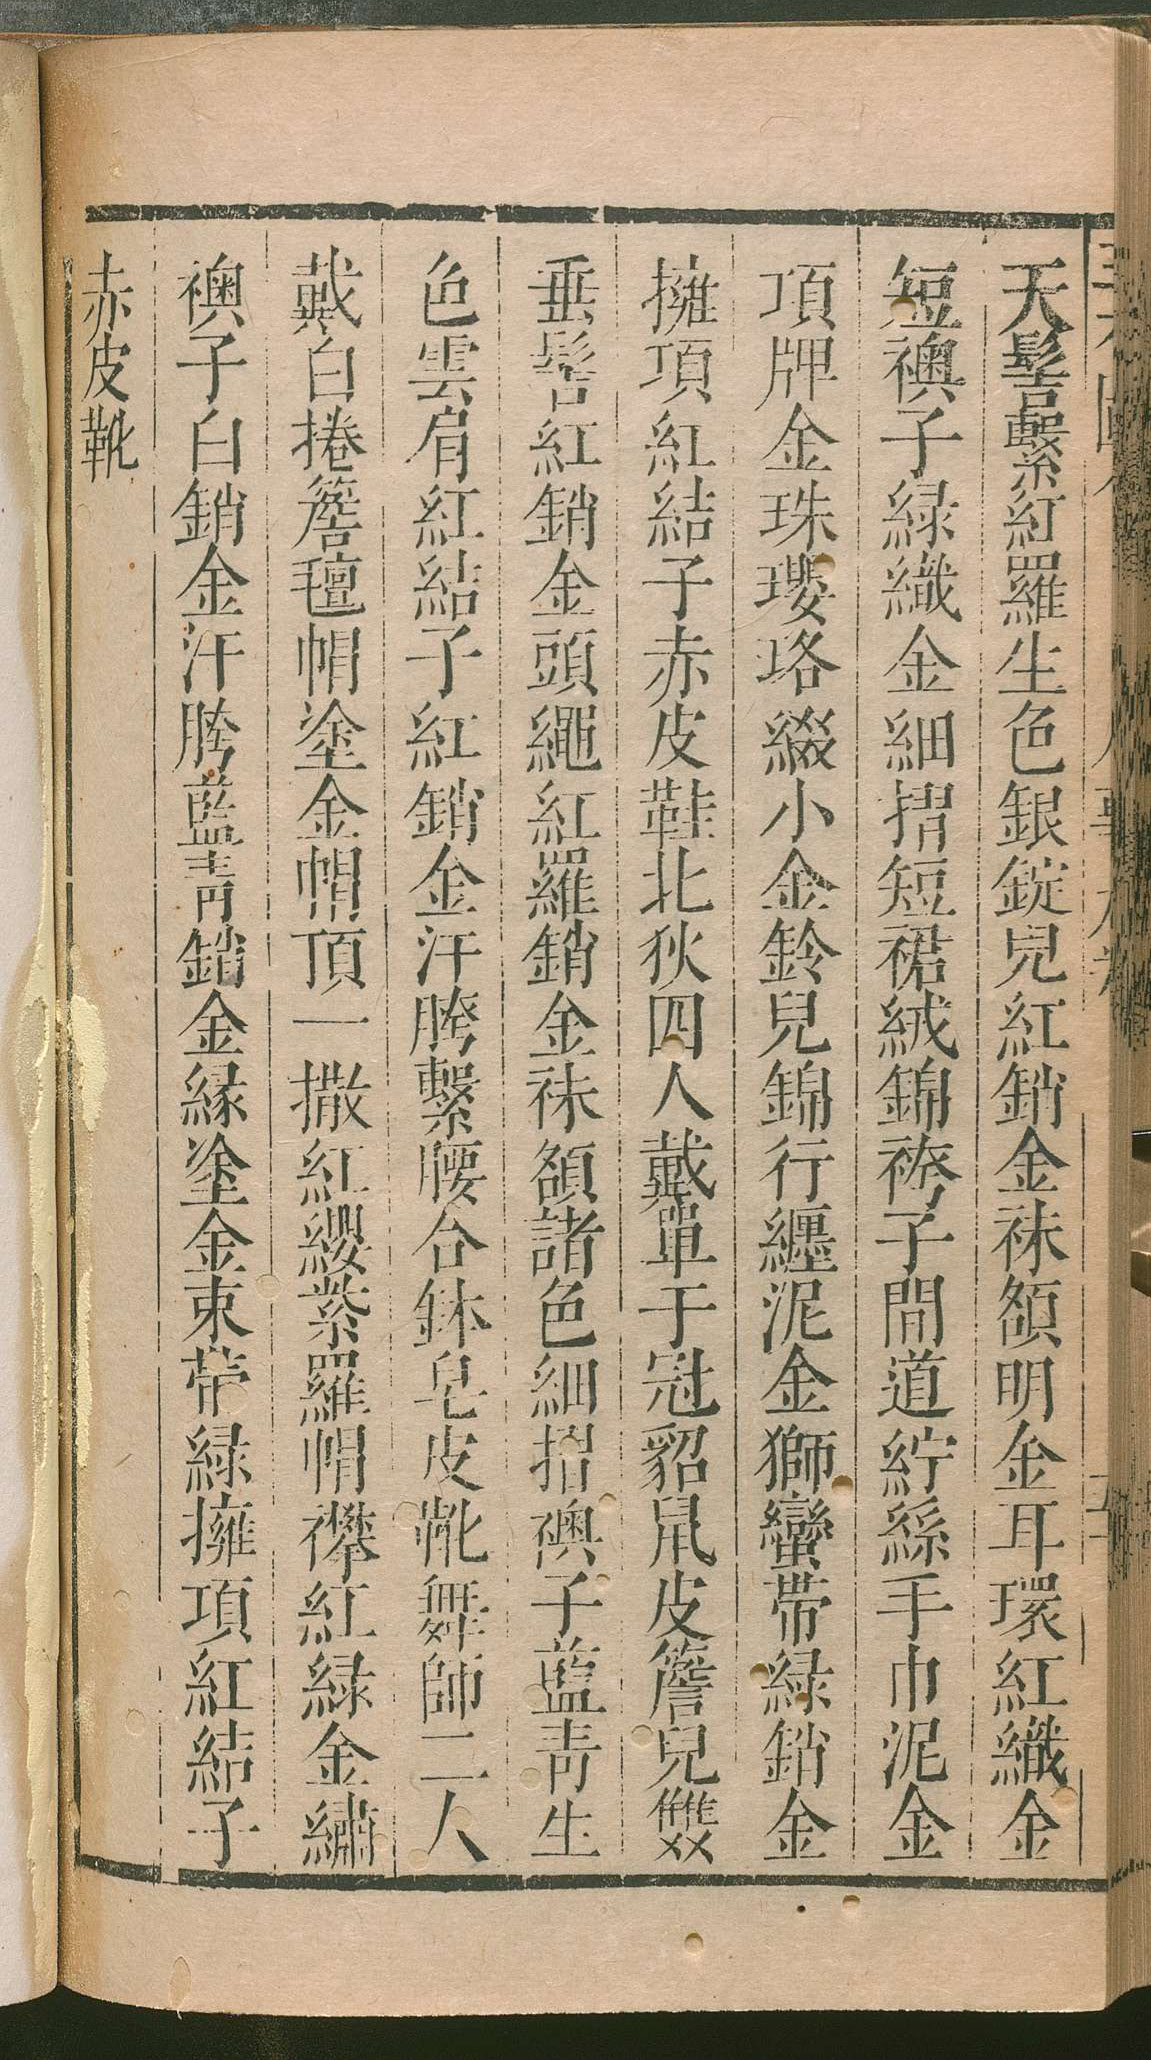 天髻繫紅羅生色銀錠兒紅銷金袜額明金耳環紅織金
短襖子緑織金細摺短裙絨錦袴子間道紵絲手巾泥金
項牌金珠瓔珞綴小金鈴兒錦行纏泥金獅蠻帶緑銷金
擁項紅結子赤皮鞋北狄四人戴單于冠貂鼠皮簷兒雙
垂髻紅銷金頭繩紅羅銷金袜額諸色細摺襖子藍青生
色雲肩紅結子紅銷金汗胯繫腰合鉢皂皮靴舞師二人
戴白捲簷氊帽塗金帽頂一撒紅纓紫羅帽襻紅緑金繡
襖子白銷金汗胯藍青銷金緣塗金束帶緑擁項紅結子
赤皮靴